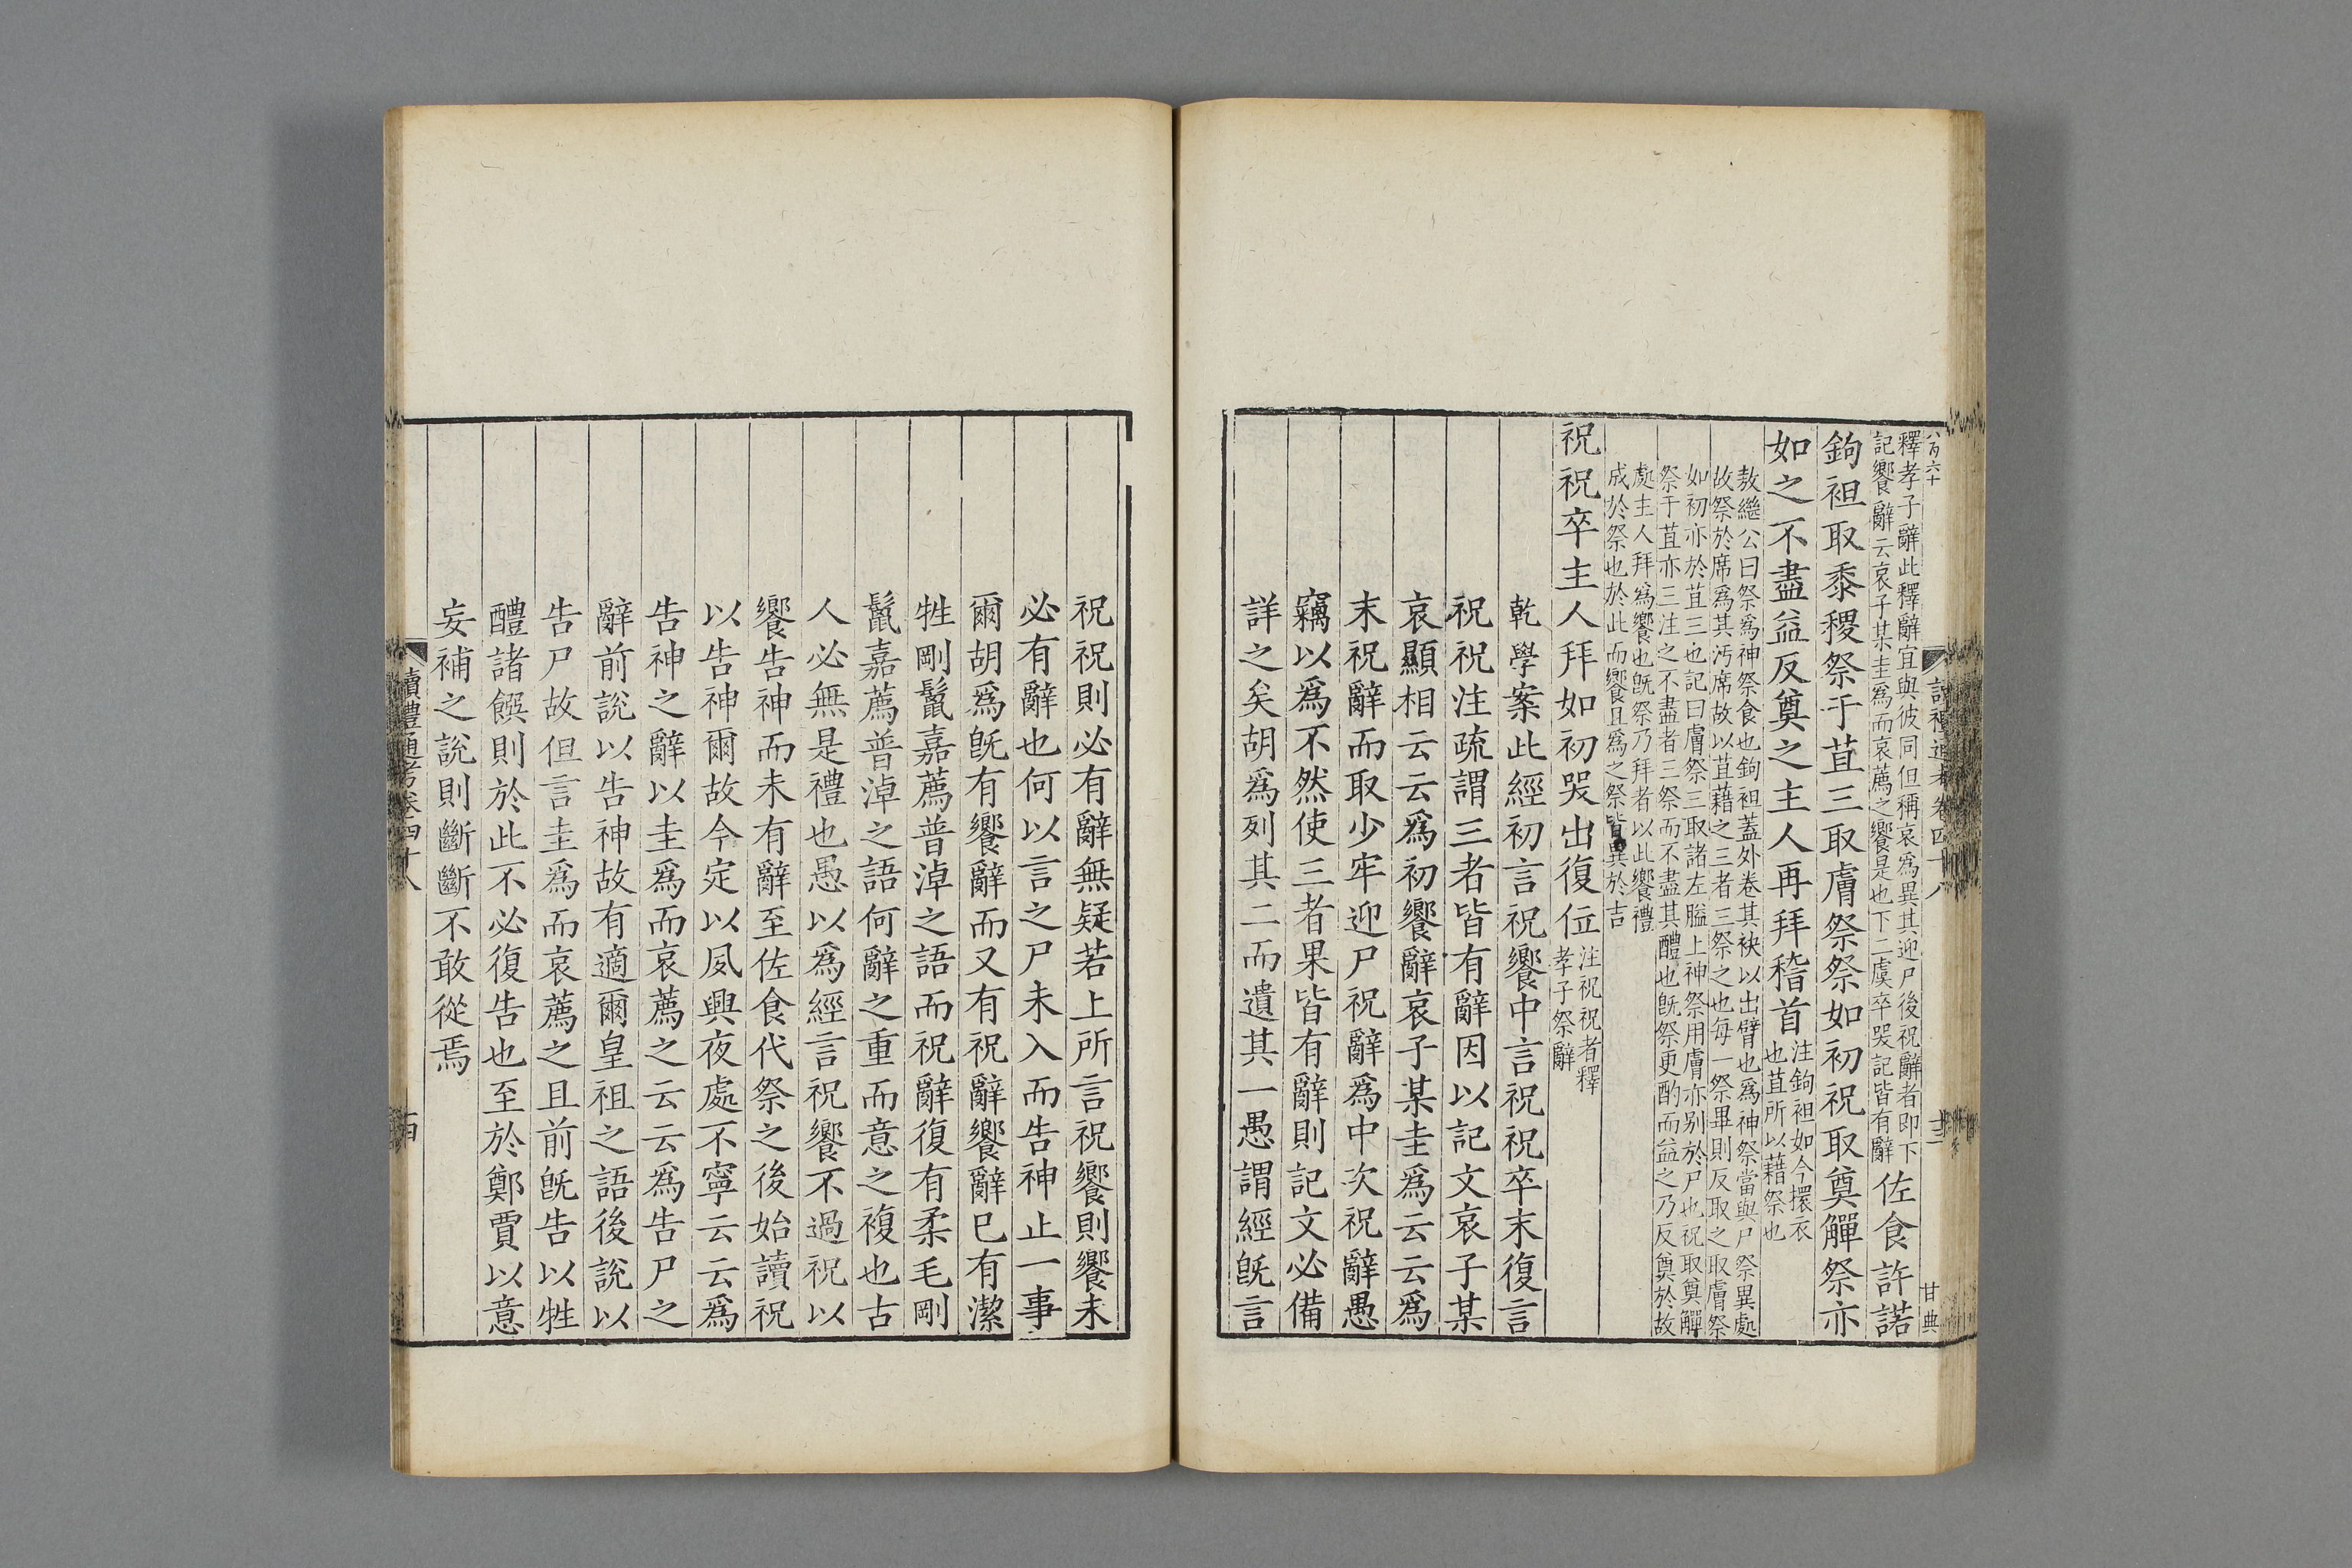 釋孝子辭此釋辭宜與彼同但稱哀爲異其迎尸後祝辭者卽下
記饗辭云哀子某圭爲而哀薦之饗是也下二虞卒哭記皆有辭
佐食許諾
鉤袒取黍稷祭于苴三取膚祭祭如初祝取奠觶祭亦
如之不盡益反奠之主人再拜稽首
注鉤袒如今擐衣
也苴所以藉祭也
敖繼公曰祭爲神祭食也鉤袒蓋外卷其袂以出臂也爲神祭當與尸祭異處
故祭於席爲其汚席故以苴藉之三者三祭之也每一祭畢則反取之取膚祭
如初亦於苴三也記曰膚祭三取諸左膉上神祭用膚亦别於尸也祝取奠觶
祭于苴亦三注之不盡者三祭而不盡其醴也旣祭更酌而益之乃反奠於故
處主人拜爲饗也旣祭乃拜者以此饗禮
成於祭也於此而饗且爲之祭皆異於吉
祝祝卒主人拜如初哭出復位
注祝祝者釋
孝子祭辭
乾學案此經初言祝饗中言祝祝卒末復言
祝祝注疏謂三者皆有辭因以記文哀子某
哀顯相云云爲初饗辭哀子某圭爲云云爲
末祝辭而取少牢迎尸祝辭爲中次祝辭愚
竊以爲不然使三者果皆有辭則記文必備
詳之矣胡爲列其二而遺其一愚謂經旣言
祝祝則必有辭無疑若上所言祝饗則饗未
必有辭也何以言之尸未入而告神止一事
爾胡爲旣有饗辭而又有祝辭饗辭已有潔
牲剛鬣嘉薦普淖之語而祝辭復有柔毛剛
鬣嘉薦普淖之語何辭之重而意之複也古
人必無是禮也愚以爲經言祝饗不過祝以
饗告神而未有辭至佐食代祭之後始讀祝
以告神爾故今定以夙興夜處不寧云云爲
告神之辭以圭爲而哀薦之云云爲告尸之
辭前說以告神故有適爾皇祖之語後說以
告尸故但言圭爲而哀薦之且前旣告以牲
醴諸饌則於此不必復告也至於鄭賈以意
妄補之說則斷斷不敢從焉
讀禮通考卷四十八
十四